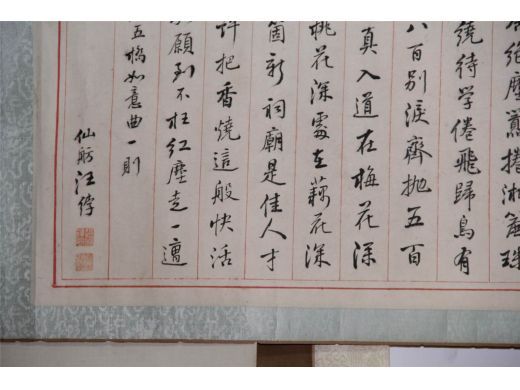 塵捲湘簾珠
繞待学倦飛歸鳥有
八百别淚齊抛五百
真入道在梅花深
桃花深處在藕花深
箇新祠廟是佳人才
許把香燒這般快活
願到不枉紅塵走一遭
五橋如意曲一則
仙舫汪